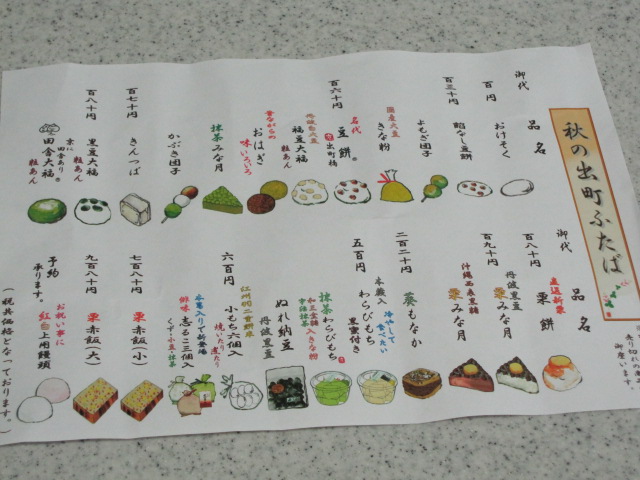 秋の出町ふたば
御代
品名
百円
おけそく
餡なし豆餅
百三十円
よもぎ団子
国産大豆
きな粉
百六十円
名代
豆餅
出町福
丹波白大豆
福豆大福
粒あん
昔ながらの
おはぎ
味いろいろ
抹茶みな月
かぶき団子
百七十円
きんつば
百八十円
黒豆大福
粒あん
京の
田舎あり。
田舎大福
粒あん
御代
品名
百八十円
丹波新栗
栗餅
丹波黒豆
栗みな月
百九十円
沖縄西表黒糖
栗みな月
二百二十円
葵もなか
本蕨入
冷やして
食べたい
わらびもち
黒蜜付き
五百円
抹茶わらびもち
和三盆糖入きな粉
宇治抹茶
ぬれ納豆
丹波黒豆
六百円
紅州明二會餅米
小もち六個入
焼いたり煮たり
本葛入りで新登場
志るこ三個入
鮮味
くず小豆抹茶
七百八十円
栗赤飯(小)
九百八十円
栗赤飯(大)
予約
承ります。
お祝い事に
紅白上用饅頭
(税具価格となっております。)
売り切れの
御座います。